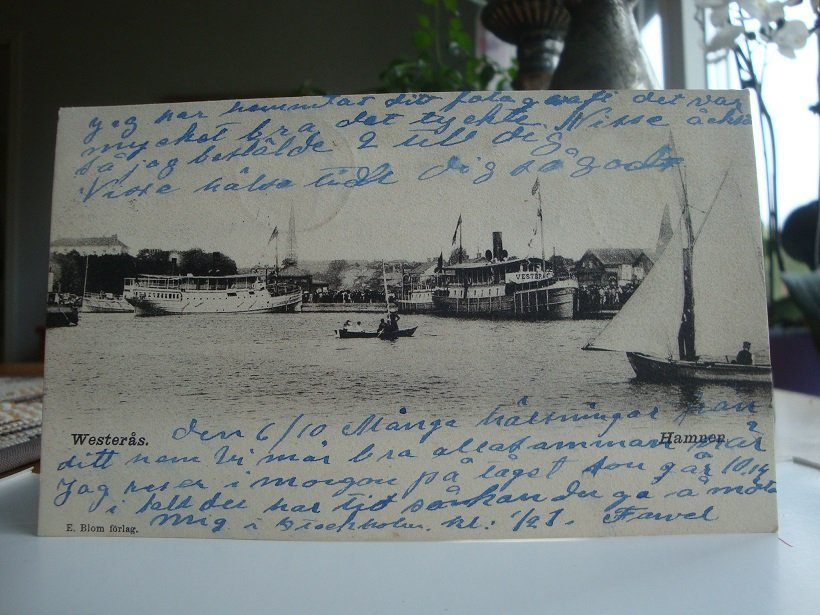 Jag har hemmtat ditt det var
mycket bra det tyckte Visse åckså
så jag bestälde 2 till dig
Visse hälse tidt dig så godt
VESTERÅS
Westerås.
Hamnen
Den 6/10 Många hälsningar från
ditt hem Vi mår bra allasamman
Jag reser i morgon på tåget som går 10,14
i fall du har tid så kan du gå å möta
mig i Stockholm. kl: 1/2 1. Farvel
E. Blom förlag.